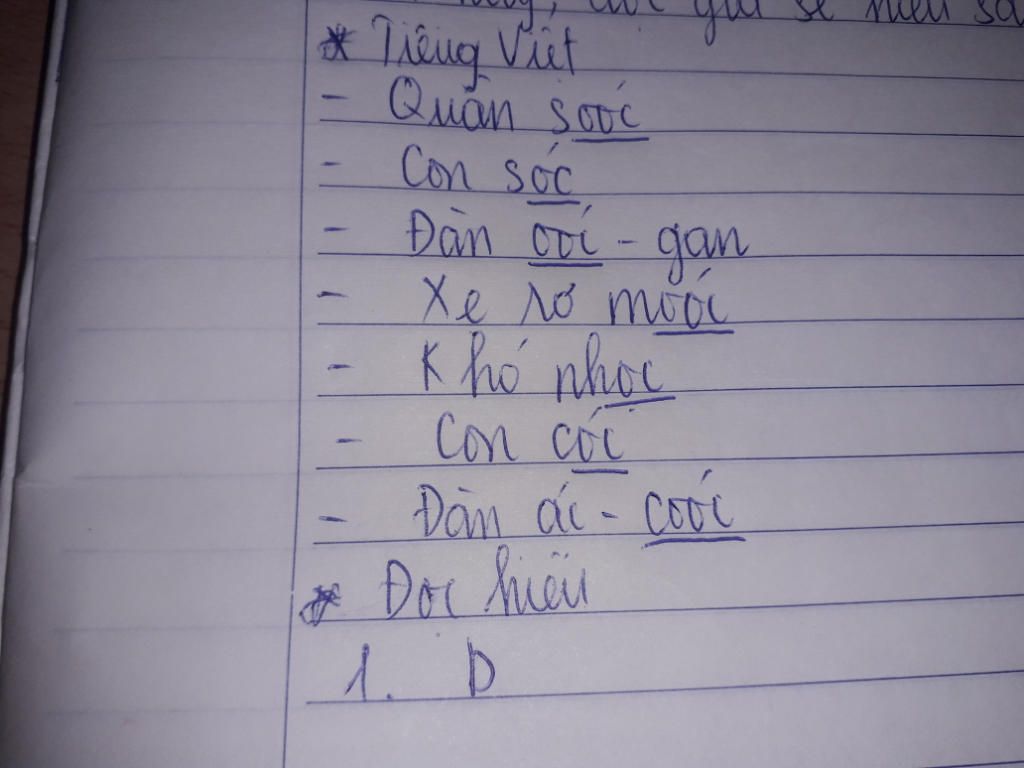 * Tiếng Việt
- Quần soóc
- Con sóc
- Đàn oóc - gan
- Xe rơ moóc
- Khó nhọc
- Con cóc
- Đàn ác - coóc
* Đọc hiểu
1. D